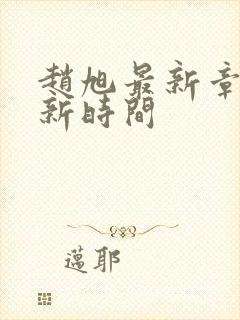 趙旭最新章
新時間
邁耶